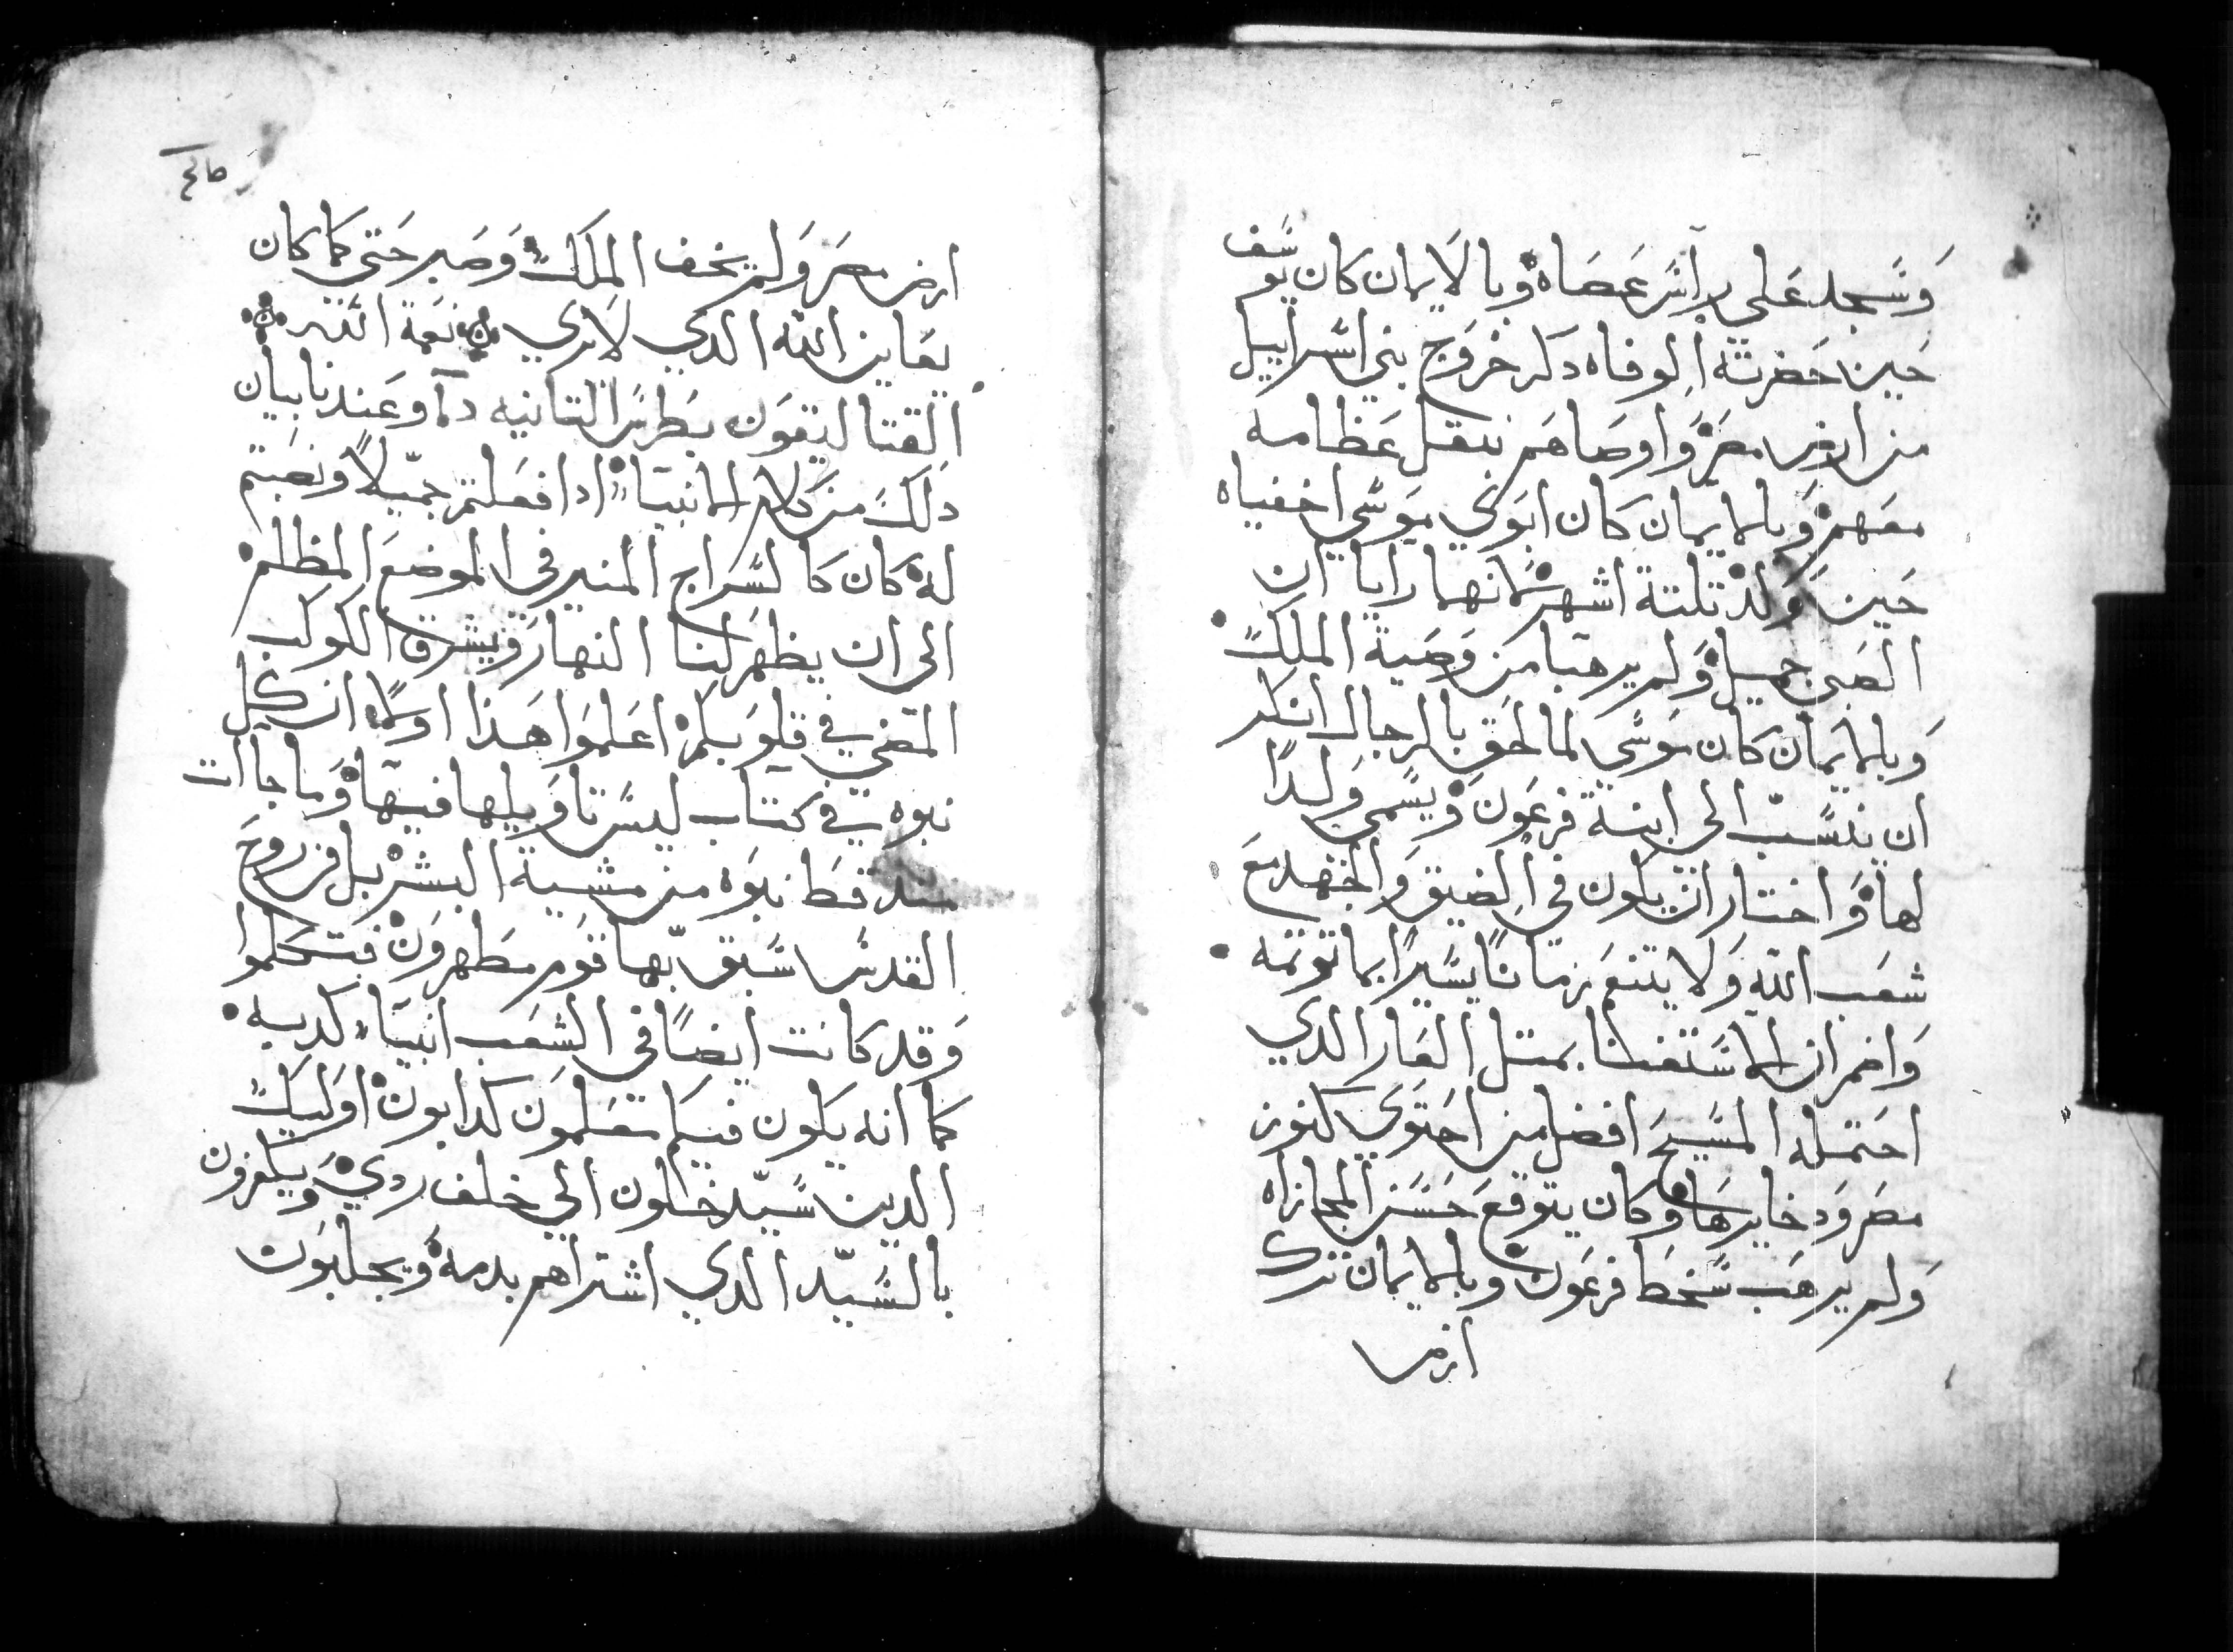 وَسَجد عَلي راَس عَصَاه وبالايمان كان يوسَف
حَين حَضرته الوفاه دكر خروَج بني اسراييل
من ارض مصَر وَاوصَاهَم بنقل عَظامه
معَهم وَبالايمان كان ابَوَي موَسَي اخفياه
حَين وَلد تلتة اشهر لانهما رايا ان
الصَبي جميل وَلم يرهبا من وَصَية الملكَ
وَبالايمان كان موَسَي لما لحَق بالرجال انكر
ان ينسَب الي ابنة فرعَون وَيسَمي وَلدًا
لها وَاختار ان يكون في الضيق وَالجهد معَ
شعَب الله وَلا يتنعَم زمانًا يسَيرًا بما توتمه
وَاضمر ان الاسَتغنا بمتل العَار الدي
احَتمله المسَيحَ افضل من احَتوَي كنوز
مصَر وَدخايرهَا وكان يتوَقعَ حَسَن المجازاه
وَلم يرهَب سَخط فرعَون وبالايمان ترك
ارض
ارض مصَر وَلم يخف الملكَ وَصَبر حَتي كما كان
يعَاين الله الدي لا يري نعَمة الله
القتاليقوَن بطرسَ التانيه دَما وعَندنا بيان
دلكَ من كلام الانبيَاء ادا فعَلتم جميَلاً ونصَبتم
له كان كالسَراج المنير في الموضعَ المظلم
الي ان يظهر لنا النهار وَيشرق الكوكب
المضي في قلوَبكم اعَلموَا هَذا اوَلاً ان كل
نبوه في كتاب ليسَ تاوَيلها فيها وَما جاات
منه قط نبوَه من مشية البشر بل من روحَ
القدسَ سَبق بها قوَم مطهروَن فتكلموا
وَقد كانت ايضًا في الشعَب انبيَاء كدبه
كما انه يكون فيكم معَلموَن كدابون اوَليكَ
الدين سَيدخلون الي خلف ردي وَيكفرون
بالسَيد الدي اشتراهم بدمه وَيجلبوَن